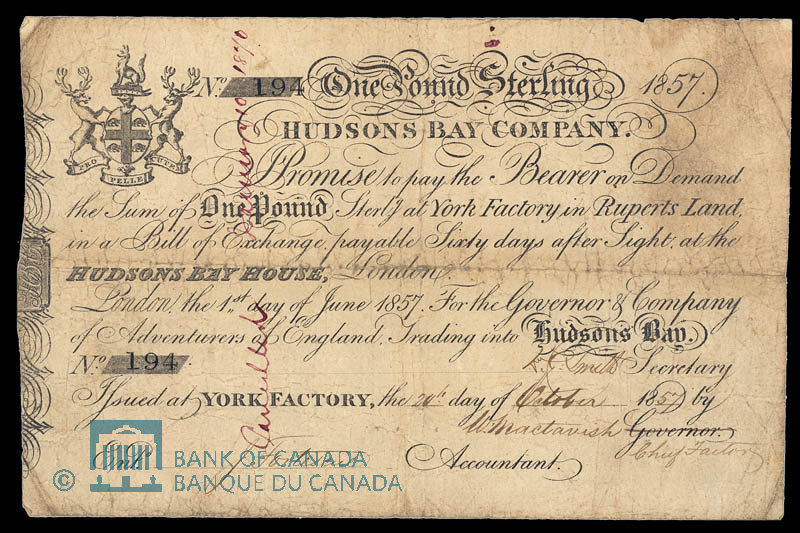 No. 194 One Pound Sterling. 1857.
HUDSONS BAY COMPANY.
PRO PELLE CUTEM
I Promise to pay the Bearer on Demand
the Sum of One Pound Sterlg. at York Factory in Ruperts Land,
in a Bill of Exchange, payable Sixty days after Sight, at the
HUDSONS BAY HOUSE, London.
London, the 1st. day of June 1857. For the Governor & Company
of Adventurers of England, Trading into Hudsons Bay.
No. 194 Secretary
Issued at YORK FACTORY, the 20th day of October 1857 by
W Mactavish Governor.
Chief Factor
Accountant.
Cancelled
1870
© BANK OF CANADA
BANQUE DU CANADA